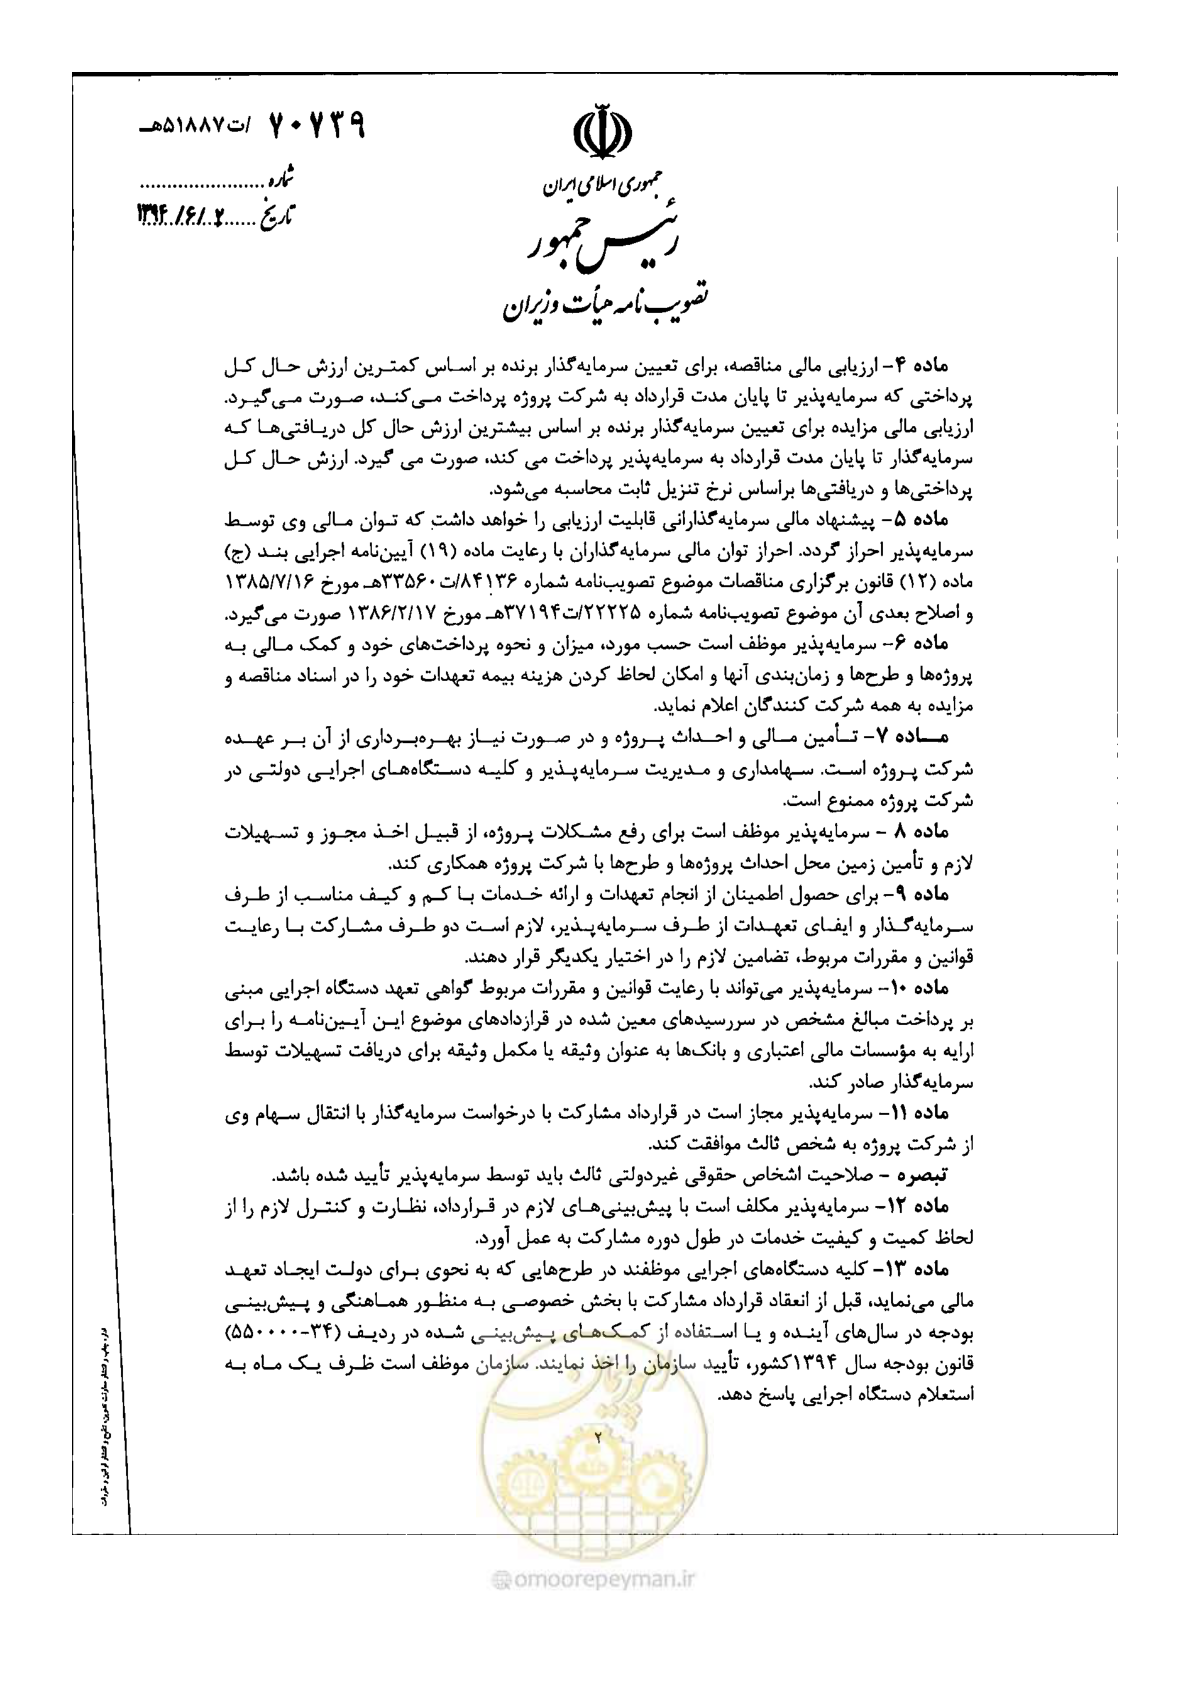 ۷۰۷۳۹ /ت۵۱۸۸۷هـ
شماره
تاریخ ۱۳۹۴/۶/۰۲
جمهوری اسلامی ایران
رئیس جمهور
تصویب نامه هیأت وزیران
ماده ۴- ارزیابی مالی مناقصه، برای تعیین سرمایه‌گذار برنده بر اساس کمترین ارزش حال کل
پرداختی که سرمایه‌پذیر تا پایان مدت قرارداد به شرکت پروژه پرداخت می‌کند، صورت می‌گیرد.
ارزیابی مالی مزایده برای تعیین سرمایه‌گذار برنده بر اساس بیشترین ارزش حال کل دریافتی‌ها که
سرمایه‌گذار تا پایان مدت قرارداد به سرمایه‌پذیر پرداخت می کند، صورت می گیرد. ارزش حال کل
پرداختی‌ها و دریافتی‌ها براساس نرخ تنزیل ثابت محاسبه می‌شود.
ماده ۵- پیشنهاد مالی سرمایه‌گذارانی قابلیت ارزیابی را خواهد داشت که توان مالی وی توسط
سرمایه‌پذیر احراز گردد. احراز توان مالی سرمایه‌گذاران با رعایت ماده (۱۹) آیین‌نامه اجرایی بند (ج)
ماده (۱۲) قانون برگزاری مناقصات موضوع تصویب‌نامه شماره ۸۴۱۳۶/ت۳۳۵۶۰هـ مورخ ۱۳۸۵/۷/۱۶
و اصلاح بعدی آن موضوع تصویب‌نامه شماره ۲۲۲۲۵/ت۳۷۱۹۴هـ مورخ ۱۳۸۶/۲/۱۷ صورت می‌گیرد.
ماده ۶- سرمایه‌پذیر موظف است حسب مورد، میزان و نحوه پرداخت‌های خود و کمک مالی به
پروژه‌ها و طرح‌ها و زمان‌بندی آنها و امکان لحاظ کردن هزینه بیمه تعهدات خود را در اسناد مناقصه و
مزایده به همه شرکت کنندگان اعلام نماید.
ماده ۷- تأمین مالی و احداث پروژه و در صورت نیاز بهره‌برداری از آن بر عهده
شرکت پروژه است. سهامداری و مدیریت سرمایه‌پذیر و کلیه دستگاه‌های اجرایی دولتی در
شرکت پروژه ممنوع است.
ماده ۸ - سرمایه‌پذیر موظف است برای رفع مشکلات پروژه، از قبیل اخذ مجوز و تسهیلات
لازم و تأمین زمین محل احداث پروژه‌ها و طرح‌ها با شرکت پروژه همکاری کند.
ماده ۹- برای حصول اطمینان از انجام تعهدات و ارائه خدمات با کم و کیف مناسب از طرف
سرمایه‌گذار و ایفای تعهدات از طرف سرمایه‌پذیر، لازم است دو طرف مشارکت با رعایت
قوانین و مقررات مربوط، تضامین لازم را در اختیار یکدیگر قرار دهند.
ماده ۱۰- سرمایه‌پذیر می‌تواند با رعایت قوانین و مقررات مربوط گواهی تعهد دستگاه اجرایی مبنی
بر پرداخت مبالغ مشخص در سررسیدهای معین شده در قراردادهای موضوع این آیین‌نامه را برای
ارایه به مؤسسات مالی اعتباری و بانک‌ها به عنوان وثیقه یا مکمل وثیقه برای دریافت تسهیلات توسط
سرمایه‌گذار صادر کند.
ماده ۱۱- سرمایه‌پذیر مجاز است در قرارداد مشارکت با درخواست سرمایه‌گذار با انتقال سهام وی
از شرکت پروژه به شخص ثالث موافقت کند.
تبصره - صلاحیت اشخاص حقوقی غیردولتی ثالث باید توسط سرمایه‌پذیر تأیید شده باشد.
ماده ۱۲- سرمایه‌پذیر مکلف است با پیش‌بینی‌های لازم در قرارداد، نظارت و کنترل لازم را از
لحاظ کمیت و کیفیت خدمات در طول دوره مشارکت به عمل آورد.
ماده ۱۳- کلیه دستگاه‌های اجرایی موظفند در طرح‌هایی که به نحوی برای دولت ایجاد تعهد
مالی می‌نماید، قبل از انعقاد قرارداد مشارکت با بخش خصوصی به منظور هماهنگی و پیش‌بینی
بودجه در سال‌های آینده و یا استفاده از کمک‌های پیش‌بینی شده در ردیف (۳۴-۵۵۰۰۰۰)
قانون بودجه سال ۱۳۹۴کشور، تأیید سازمان را اخذ نمایند. سازمان موظف است ظرف یک ماه به
استعلام دستگاه اجرایی پاسخ دهد.
۲
امور پیمان
omoorepeyman.ir